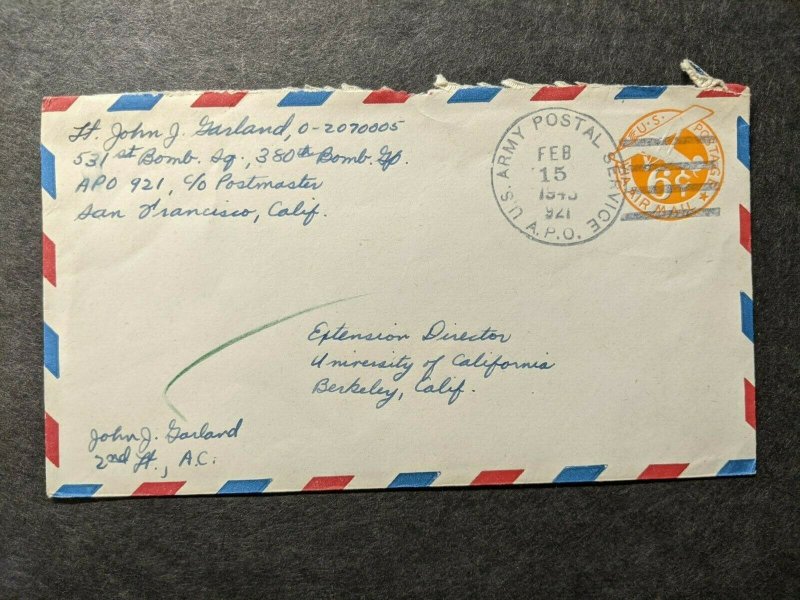 Lt. John J. Garland, O-2070005
531st Bomb. Sq., 380th Bomb. Gp.
APO 921, c/o Postmaster
San Francisco, Calif.
U.S. ARMY POSTAL SERVICE
FEB
15
1945
921
A.P.O.
U.S. POSTAGE
6¢
VIA AIR MAIL
Extension Director
University of California
Berkeley, Calif.
John J. Garland
2nd Lt., A.C.